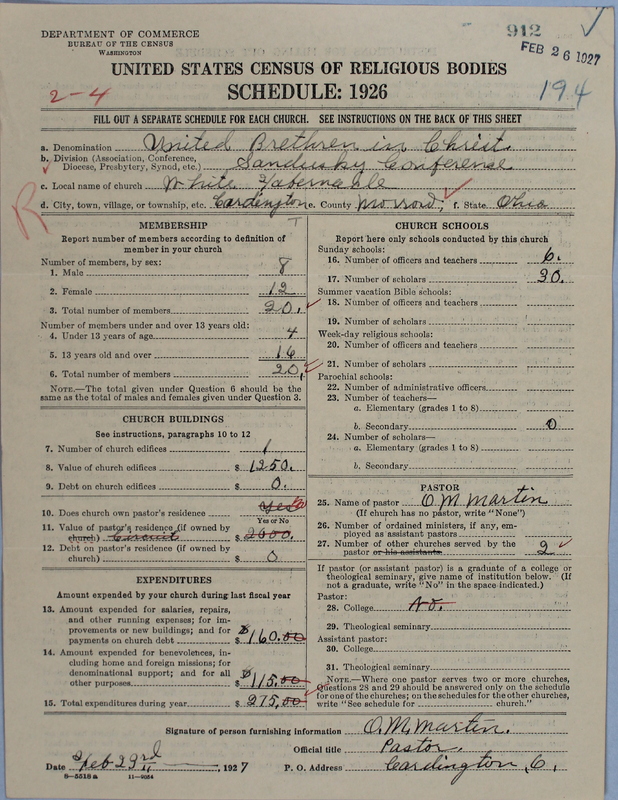 DEPARTMENT OF COMMERCE
BUREAU OF THE CENSUS
WASHINGTON
912
FEB 26 1927
UNITED STATES CENSUS OF RELIGIOUS BODIES
2-4
SCHEDULE: 1926
194
FILL OUT A SEPARATE SCHEDULE FOR EACH CHURCH. SEE INSTRUCTIONS ON THE BACK OF THIS SHEET
a. Denomination United Brethren in Christ
b. Division (Association, Conference, Diocese, Presbytery, Synod, etc.) Sandusky Conference
c. Local name of church White Tabernacle
d. City, town, village, or township, etc. Cardington e. County Morrow; f. State Ohio
R
MEMBERSHIP
Report number of members according to definition of
member in your church
Number of members, by sex:
1. Male 8
2. Female 12
3. Total number of members 20.
Number of members under and over 13 years old:
4. Under 13 years of age 4
5. 13 years old and over 16
6. Total number of members 20.
NOTE.—The total given under Question 6 should be
same as the total of males and females given under Question 3.
CHURCH BUILDINGS
See instructions, paragraphs 10 to 12
7. Number of church edifices 1
8. Value of church edifices $ 1250.
9. Debt on church edifices $ 0.
10. Does church own pastor's residence yes
Yes or No
11. Value of pastor's residence (if owned by
church) Circuit $ 2000.
12. Debt on pastor's residence (if owned by
church) $ 0
EXPENDITURES
Amount expended by your church during last fiscal year
13. Amount expended for salaries, repairs,
and other running expenses; for im-
provements or new buildings; and for
payments on church debt $ 160.00
14. Amount expended for benevolences, in-
cluding home and foreign missions; for
denominational support; and for all
other purposes $ 115.00
15. Total expenditures during year $ 275.00
CHURCH SCHOOLS
Report here only schools conducted by this church
Sunday schools:
16. Number of officers and teachers 6.
17. Number of scholars 30.
Summer vacation Bible schools:
18. Number of officers and teachers
19. Number of scholars
Week-day religious schools:
20. Number of officers and teachers
21. Number of scholars
Parochial schools:
22. Number of administrative officers
23. Number of teachers—
a. Elementary (grades 1 to 8)
b. Secondary 0
24. Number of scholars—
a. Elementary (grades 1 to 8)
b. Secondary
PASTOR
25. Name of pastor O. M. Martin
(If church has no pastor, write "None")
26. Number of ordained ministers, if any, em-
ployed as assistant pastors
27. Number of other churches served by the
pastor or his assistants 2
If pastor (or assistant pastor) is a graduate of a college or
theological seminary, give name of institution below. (If
not a graduate, write "No" in the space indicated.)
Pastor:
28. College no.
29. Theological seminary
Assistant pastor:
30. College
31. Theological seminary
NOTE.—Where one pastor serves two or more churches,
Questions 28 and 29 should be answered only on the schedule
for one of the churches; on the schedules for the other churches,
write "See schedule for church."
Signature of person furnishing information O. M. Martin.
Official title Pastor.
Date Feb 23rd, 1927 P. O. Address Cardington, O.
8-5518a 11-9054